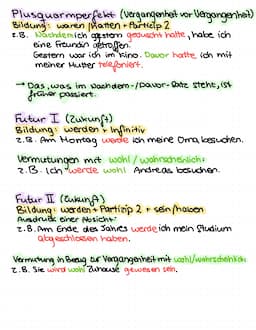 Plusquamperfekt (Vergangenheit vor Vergangenheit)
Bildung: waren/hatten + Partizip 2
z.B. Nachdem ich gestern geduscht hatte, habe ich
eine Freundin getroffen.
Gestern war ich im Kino. Davor hatte ich mit
meiner Mutter telefoniert.
→ Das, was im Nachdem-/Davor-Satz steht, ist
früher passiert.
Futur I (Zukunft)
Bildung: werden + Infinitiv
z.B. Am Montag werde ich meine Oma besuchen.
Vermutungen mit wohl/wahrscheinlich:
z.B. Ich werde wohl Andreas besuchen.
Futur II (Zukunft)
Bildung: werden + Partizip 2 + sein/haben
Ausdruck einer Absicht:
z.B. Am Ende des Jahres werde ich mein Studium
abgeschlossen haben.
Vermutung in Bezug zur Vergangenheit mit wohl/wahrscheinlich
z.B. Sie wird wohl Zuhause gewesen sein.